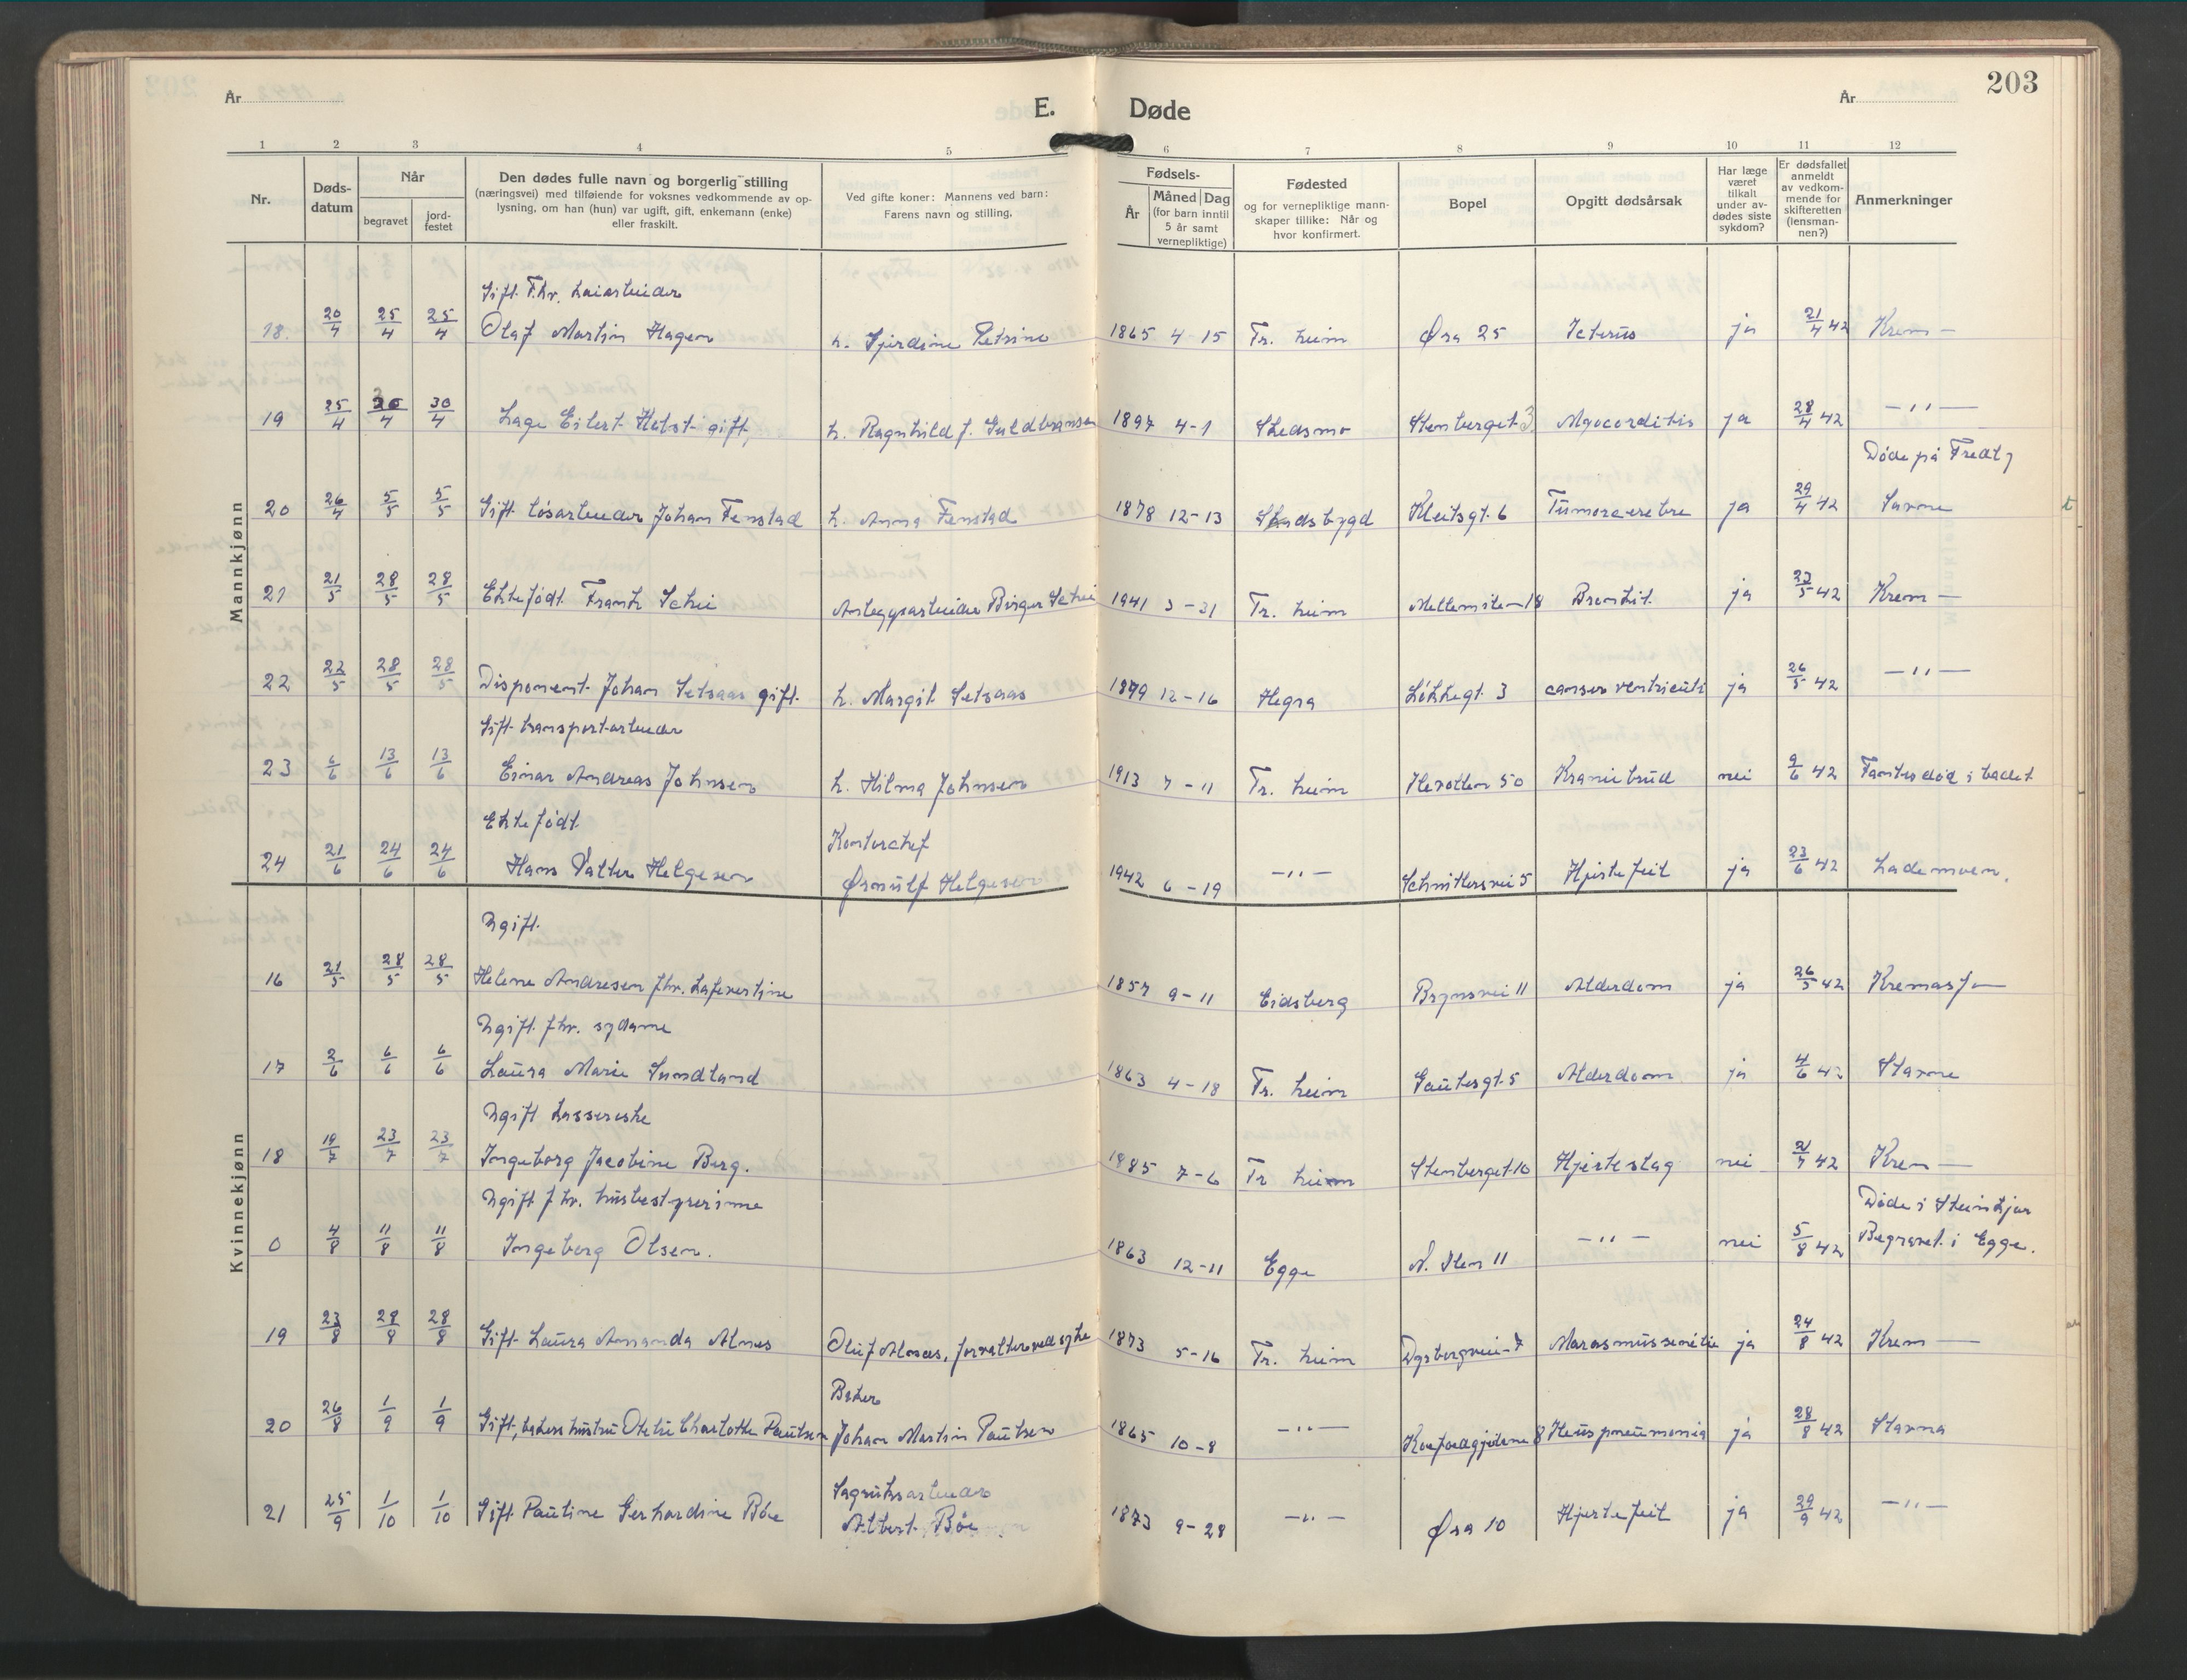 År
E.
Døde
År
203
1 2 3 4 5 6 7 8 9 10 11 12
Nr.
Døds-
datum
Når
begravet
jord-
festet
Den dødes fulle navn og borgerlig stilling
(næringsvei) med tilføiende for voksnes vedkommende av op-
lysning, om han (hun) var ugift, gift, enkemann (enke)
eller fraskilt.
Ved gifte koner: Mannens ved barn:
Farens navn og stilling.
Fødsels-
År
Måned Dag
(for barn inntil
5 år samt
vernepliktige)
Fødested
og for vernepliktige mann-
skaper tillike: Når og
hvor konfirmert.
Bopel
Opgitt dødsårsak
Har læge
været
tilkalt
under av-
dødes siste
sykdom?
Er dødsfallet
anmeldt
av vedkom-
mende for
skifteretten
(lensman-
nen?)
Anmerkninger
Mannkjønn
Gift. F.hv.
18. 20/4 25/4 25/4 Olaf Martin Hagen h. Petrine 1865 4-15 Tr. heim Øra 25 Icterus ja 21/4 42 Krem —
19 25/4 30/4 30/4 Lage Eilert gift, h. Ragnhild f. Guldbransen 1897 4-1 Skedsmo Stenberget 3 Myocorditis ja 28/4 42 —〃—
Døde på
20 26/4 5/5 5/5 Gift løsarbeider Johan Fenstad h. Anna Fenstad 1878 12-13 Stadsbygd 6 ja 29/4 42
21 21/5 28/5 28/5 Ektefødt Frank Schei Anleggsarbeider Birger Schei 1941 3-31 Tr. heim Mellemila 18 Bronkit. ja 22/5 42 Krem —
22 22/5 28/5 28/5 Disponent Johan Setsaas gift. h. Margit Setsaas 1879 12-16 Hegra Løkkegt 3 canser ventriculi ja 26/5 42 —〃—
Gift transportarbeider
23 6/6 13/6 13/6 Einar Andreas Johnsen h. Hilma Johnsen 1913 7-11 Tr. heim 50 Kraniebrud nei 9/6 42 Fantes død i badet
Ektefødt Kontorchef
24 21/6 24/6 24/6 Hans Valter Helgesen Ørnulf Helgesen 1942 6-19 —〃— Schnitlersvei 5 Hjertefeil ja 23/6 42 Lademoen.
Kvinnekjønn
Ugift.
16 21/5 28/5 28/5 Helene Andresen fhv. 1857 9-11 Eidsberg Brynsvei 11 Alderdom ja 26/5 42 Kremasj —
Ugift fhv. sydame
17 2/6 6/6 6/6 Laura Marie Sundland 1863 4-18 Tr. heim Gautesgt. 5 Alderdom ja 4/6 42 Stavne
Ugift kassererske
18 19/7 23/7 23/7 Ingeborg Jacobine Berg. 1885 7-6 Tr heim Stenberget 10 Hjerteslag nei 21/7 42 Krem —
Ugift fhv. husbestyrerinne Døde i Steinkjær
0 4/8 11/8 11/8 Ingeborg Olsen. 1863 12-11 Egge N. Ilen 11 —〃— nei 5/8 42 Begravet i Egge.
19 23/8 28/8 28/8 Gift Laura Amanda Alnes Oluf Alnæs, forvalter ved syke 1873 5-16 Tr. heim 7 Marasmus senilis ja 24/8 42 Krem —
Baker
20 26/8 1/9 1/9 Gift, bakers hustru Otelie Charlotte Paulsen Johan Martin Paulsen 1865 10-8 —〃— 8 ja 28/8 42 Stavna
Sagbruksarbeider
21 25/9 1/10 1/10 Gift Pauline Gerhardine Bøe Albert Bøe 1873 9-28 —〃— Øra 10 Hjertefeil ja 29/9 42 —〃—